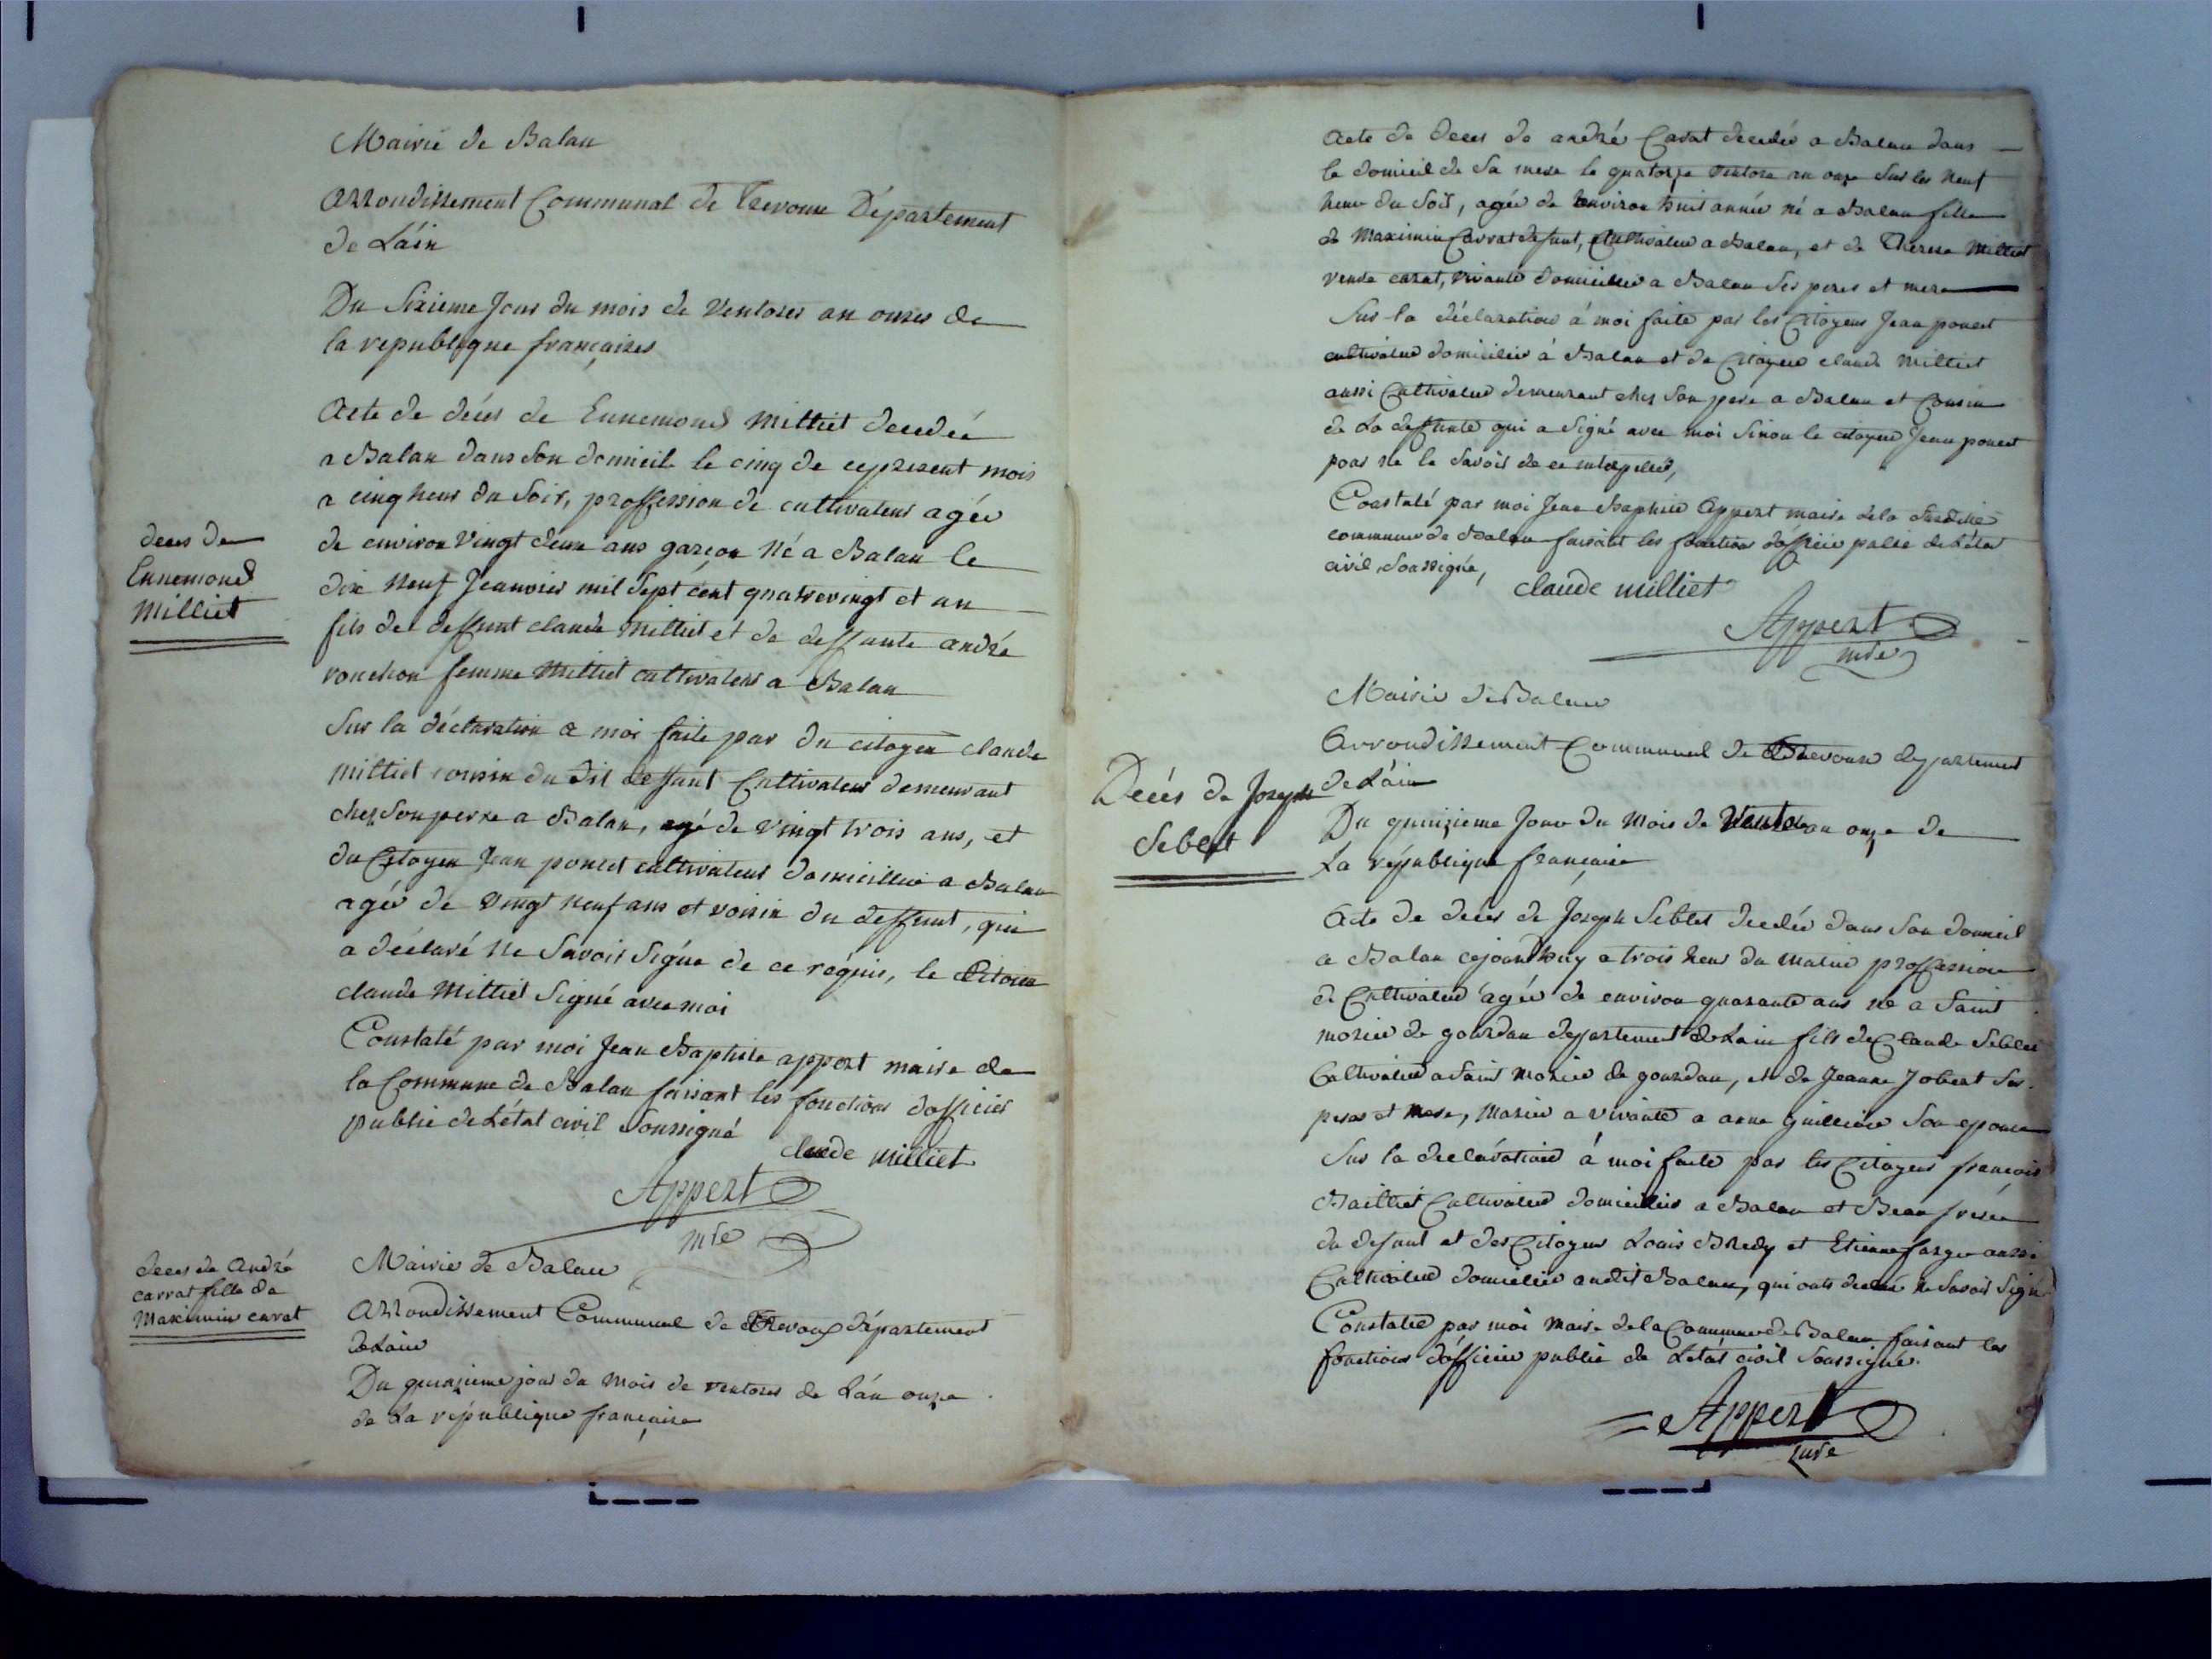 Mairie de Balan
Arrondissement Communal de Trevoux Département
de L'ain
Du Sixieme Jour du mois de Ventoses an onzes de
la republiqque françaises
decés de
Ennemond
Milliet
Acte de décés de Ennemond Milliet decedée
a Balan dans son domicil le cinq de cepresent mois
a cinq heur du Soir, proffession de cultivateur agée
de environ Vingt deux ans garçon Né a Balan le
dix Neuf Jeanvier mil Sept cent quatrevingt et un
fils de deffunt claude Milliet et de deffunte andré
ronchon femme Milliet cultivateur a Balan
Sur la déclaration a moi faite par du citoyen claude
Milliet cousin du dit deffunt Cultivateur demeurant
chez Son perre a Balan, agé de Vingt trois ans, et
du Citoyen Jean poncet cultivateur domicillié a Balan
agée de Vingt neuf ans et voisin du deffunt, qui
a déclaré Ne Savoir Signé de ce réquis, le Citoien
claude Milliet Signé avec moi
Constaté par moi Jean Baptiste appert maire de
la Commune de Balan faisant les fonctions d'officier
public de L'état civil Soussigné
claude milliet
Appert
mre
decés de André
carrat fille de
Maximin carat
Mairie de Balan
Arrondissement Communal de Trevoux département
de Lain
Du quinzieme jour du Mois de ventoses de L'an onze
de La république française
Acte de deces de andré Carat decedée a Balan dans
le domicil de Sa mere le quatorze Ventose an onze Sur les Neuf
heur du Soir, agée de environ huit année né a Balan fille
de Maximin Carrat defunt, Cultivateur a Balan, et de Therese Milliet
veuve carat, vivante domiciliée a Balan Ses peres et mere
Sur la déclaration à moi faite par les Citoyens Jean poncet
cultivateur domicilier à Balan et de Citoyen claude Milliet
aussi Cultivateur demeurant chez Son pere a Balan et Cousin
de La deffunte qui a Signé avec moi Sinon le citoyen Jean poncet
pour ne le Savoir de ce interpellé,
Constaté par moi Jean Baptiste Appert maire de la Susdite
commune de Balan faisant les fonctions d'officier public de L'état
civil Soussigné,
claude milliet
Appert
mre
Mairie de Balan
Arrondissement Communal de Trevoux departement
de L'ain
Décés de Joseph
Seblet
Du quinzieme Jour du Mois de Ventose an onze de
La république française
Acte de decés de Joseph Seblet decedée dans Son domicil
a Balan cejourdhuy a trois heur du Matin proffession
de Cultivateur agée de environ quarante ans né a Saint
morice de gourdan departement de Lain fils de Claude Seblet
Cultivateur a Saint Morice de gourdan, et de Jeanne Jobert Ses
peres et Mere, Marier a vivante a anne guilliere Son epouse
Sur la declaration à moi faite par les Citoyens françois
Baillet Cultivateur domicilier a Balan et Beau frere
du defunt et des Citoyens Louis Bredy et Etienne farge aussi
Cultivateur domicilier audit Balan, qui onts declaré ne Savoir Signé
Constatée par moi Maire de la Commune de Balan faisant les
fonctions d'officier public de L'état civil Soussigné.
Appert
mre